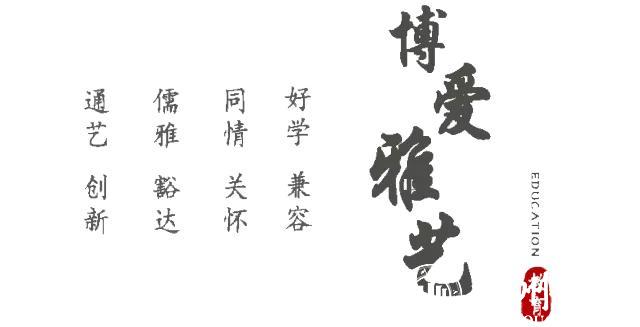 博爱雅艺
好学 兼容
同情 关怀
儒雅 豁达
通艺 创新
EDUCATION
教育